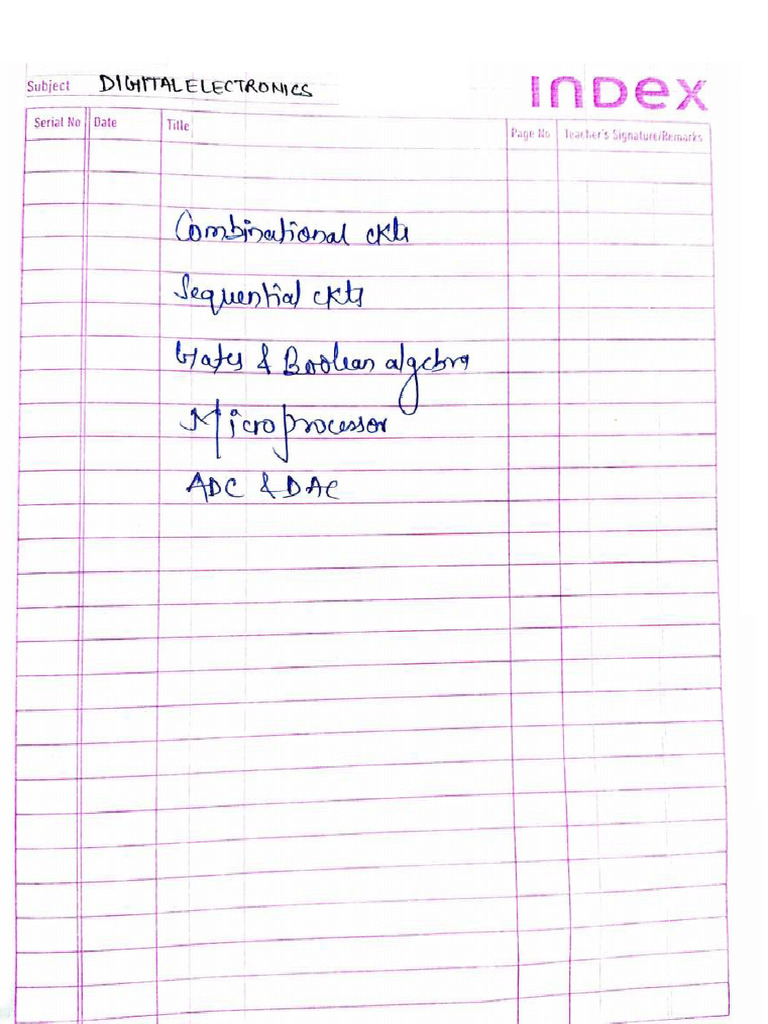 Subject DIGITAL ELECTRONICS
INDEX
Serial No Date Title Page No Teacher's Signature/Remarks
Combinational ckts
Sequential ckts
Gates & Boolean algebra
Microprocessor
ADC & DAC